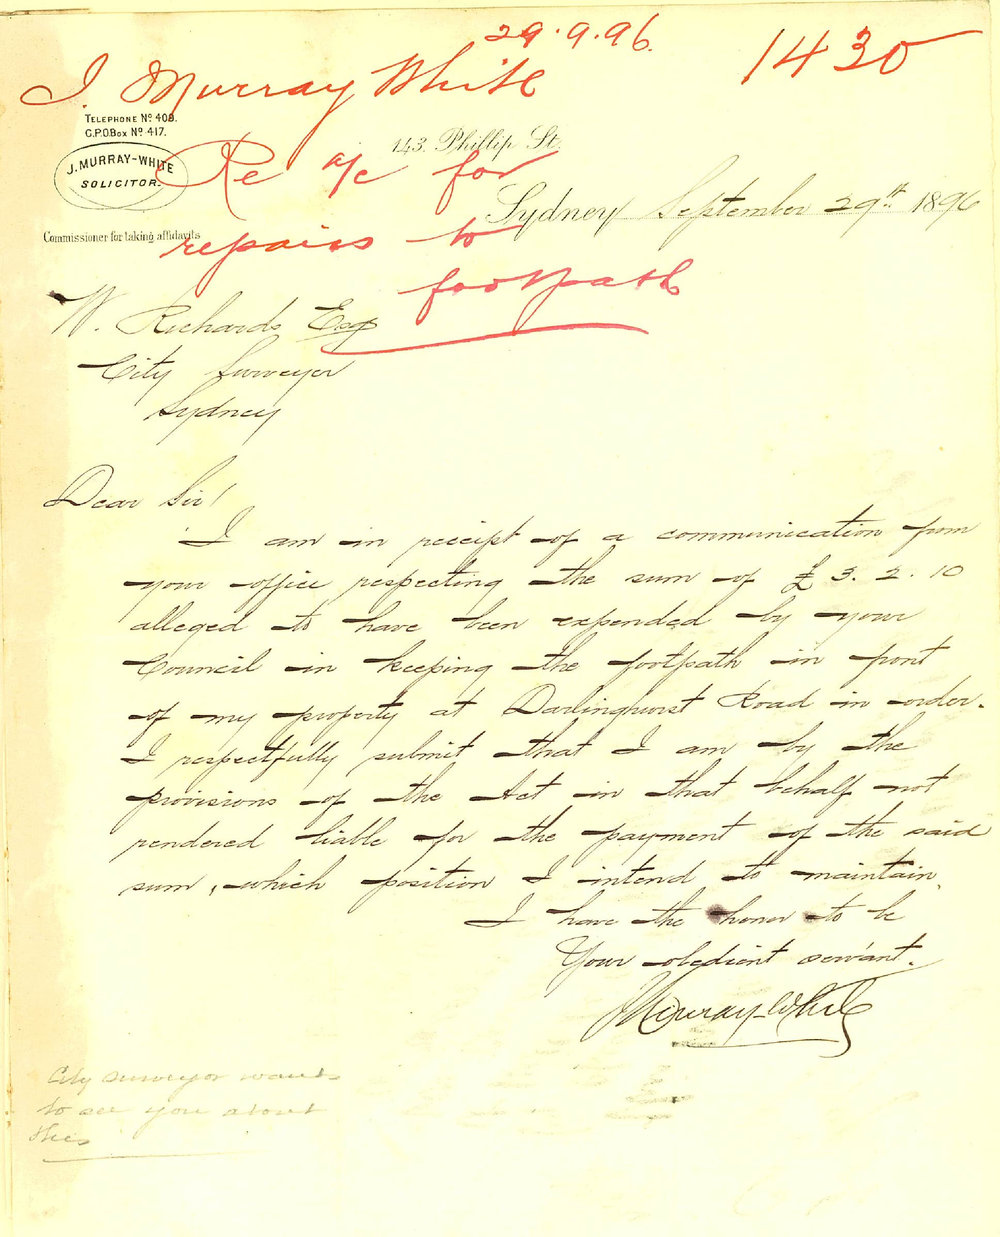 29.9.96.
1430
J. Murray White
Re a/c for
repairs to
footpath
TELEPHONE No 409.
G.P.O. Box No 417.
J. MURRAY-WHITE
SOLICITOR.
Commissioner for taking affidavits
143. Phillip St.
Sydney September 29th 1896
W. Richards Esq
City Surveyor
Sydney
Dear Sir!
I am in receipt of a communication from
your office respecting the sum of £3.2.10
alleged to have been expended by your
Council in keeping the footpath in front
of my property at Darlinghurst Road in order.
I respectfully submit that I am by the
provisions of the Act in that behalf not
rendered liable for the payment of the said
sum, which position I intend to maintain.
I have the honor to be
Your obedient servant.
J Murray-White
City surveyor wants
to see you about
this